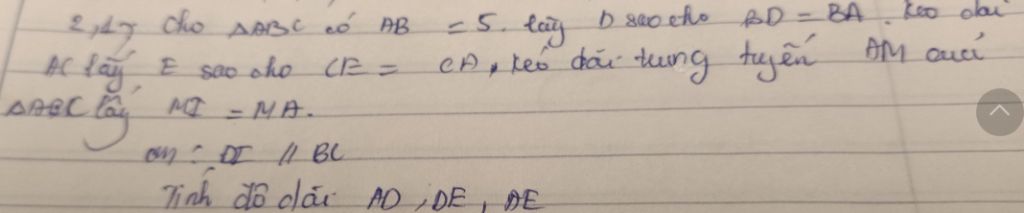 2,17 Cho ΔABC có AB = 5. lấy D sao cho BD = BA. Kéo dài
AC lấy E sao cho CE = CA, kéo dài trung tuyến AM của
ΔABC lấy MI = MA.
cm: DI // BC
Tính độ dài AD, DE, AE